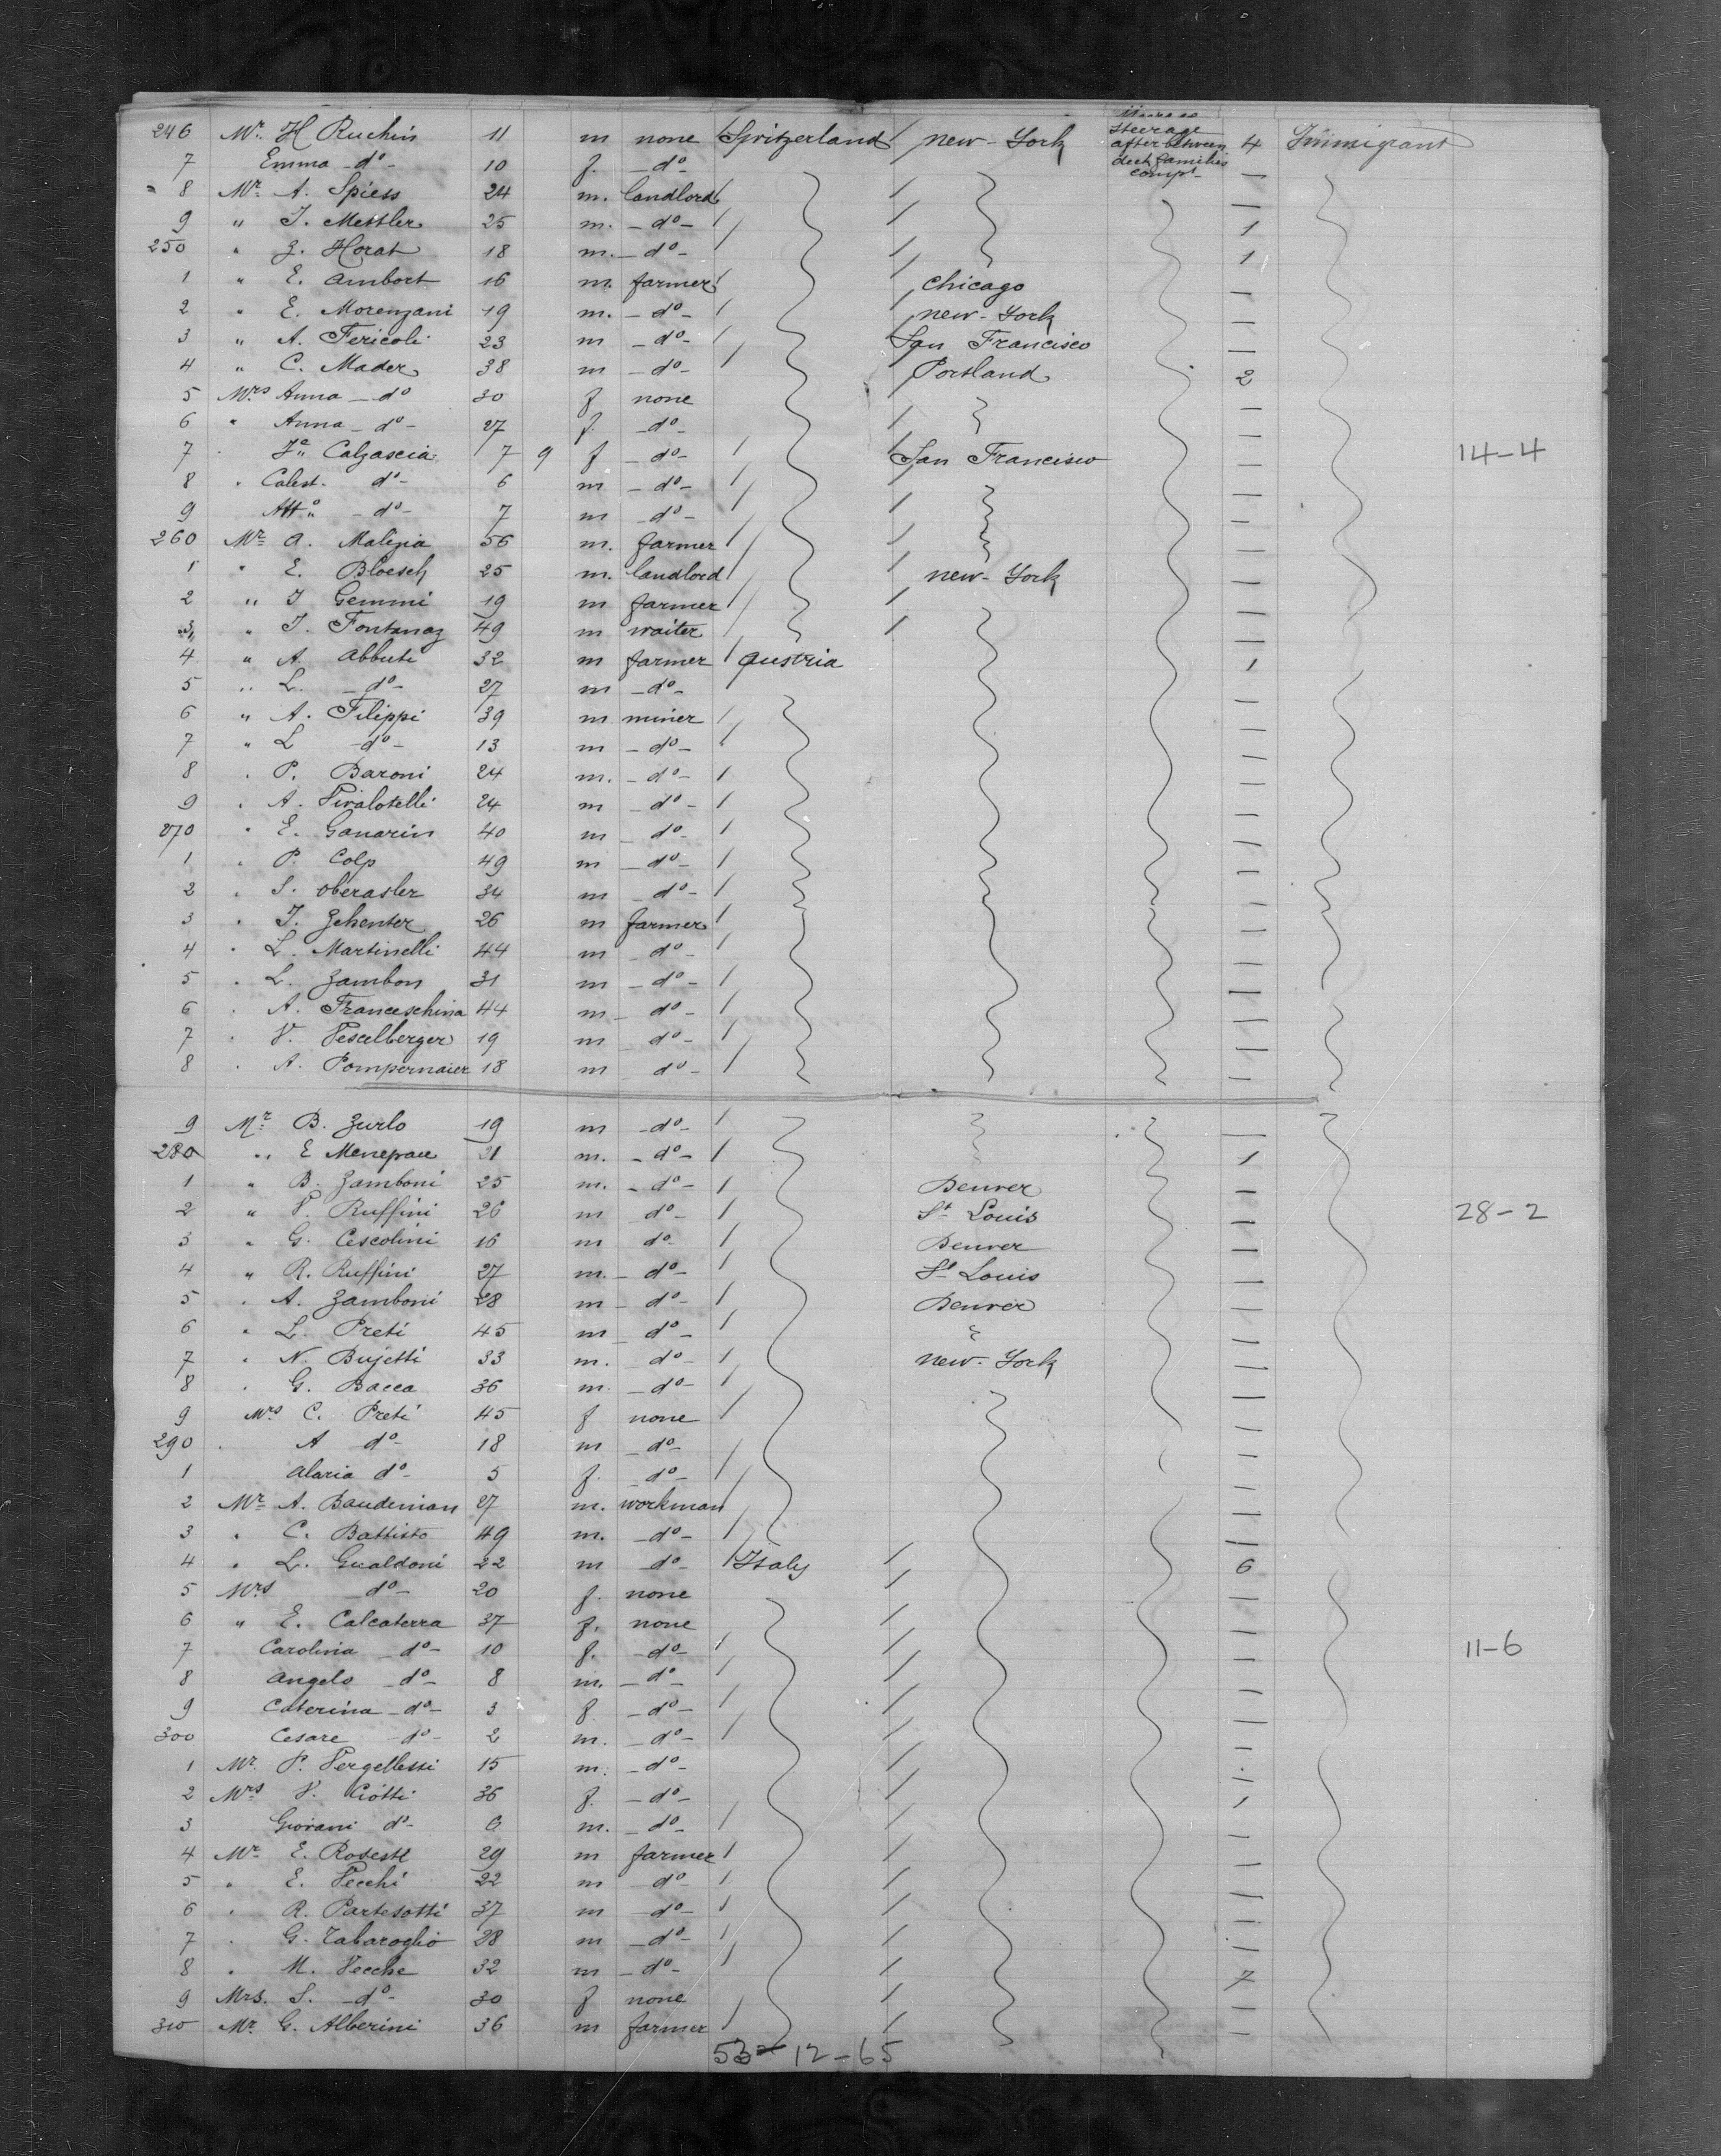 246 Mr. H Ruchin 11 m none Switzerland New-York steerage after between deck families compt 4 Immigrant
7 Emma do 10 f. do
8 Mr. A. Spiess 24 m. landlord —
9 " J. Mettler 25 m. do 1
250 " J. Horat 18 m. do 1
1 " E. Ambort 16 m. farmer Chicago —
2 " E. Morenzani 19 m. do New-York —
3 " A. Fericoli 23 m do San Francisco —
4 " C. Mader 38 m do Portland 2
5 Mrs Anna do 30 f none —
6 " Anna do 27 f. do —
7 Calzascia 7 9 f do San Francisco — 14-4
8 " Celest. do 6 m do —
9 Att° do 7 m do —
260 Mr A. Malizia 56 m. farmer —
1 " E. Bloesch 25 m. landlord New-York —
2 " J Gemmi 19 m farmer —
3 " J. Fontanaz 49 m waiter —
4 " A. Abbuti 32 m farmer Austria 1
5 " L. do 27 m do —
6 " A. Filippi 39 m miner —
7 " L do 13 m do —
8 " P. Baroni 24 m. do —
9 " A. 24 m do —
270 " E. Ganarin 40 m do —
1 " P. Colp 49 m do —
2 " S. Oberasler 34 m do —
3 " J. Zehenter 26 m farmer —
4 " L. Martinelli 44 m do —
5 " L. Zambon 31 m do —
6 " A. Franceschina 44 m do —
7 " V. Vescelberger 19 m do —
8 " A. Pompermaier 18 m do —
9 Mr B. Zurlo 19 m do —
280 " E Menepau 21 m. do 1
1 " B. Zamboni 25 m. do Denver —
2 " V. Ruffini 26 m do St Louis — 28-2
3 " G. Cescolini 16 m do Denver —
4 " R. Ruffini 27 m. do St Louis —
5 " A. Zamboni 28 m do Denver —
6 " L. Preti 45 m do —
7 " N. Bujetti 33 m. do New-York —
8 " G. Bacca 36 m. do —
9 Mrs C. Preti 45 f none —
290 A do 18 m do —
1 Alaria do 5 f. do —
2 Mr A. Baudenian 27 m. workman —
3 " C. Battisto 49 m. do —
4 " L. Gualdoni 22 m do Italy 6
5 Mrs do 20 f. none —
6 " E. Calcaterra 37 f. none —
7 Carolina do 10 f. do — 11-6
8 Angelo do 8 m. do —
9 Caterina do 3 f do —
300 Cesare do 2 m. do —
1 Mr. P. Vergellessi 15 m. do —
2 Mrs V. Ciotti 36 f. do 1
3 Giovani do 6 m. do —
4 Mr. E. 29 m farmer —
5 " E. Vecchi 22 m do —
6 " R. Partesotti 37 m do —
7 " G. Tabaroglio 28 m do —
8 " M. Vecche 32 m do 7
9 Mrs. S. do 30 f none —
310 Mr. G. Alberini 36 m farmer —
53-12-65